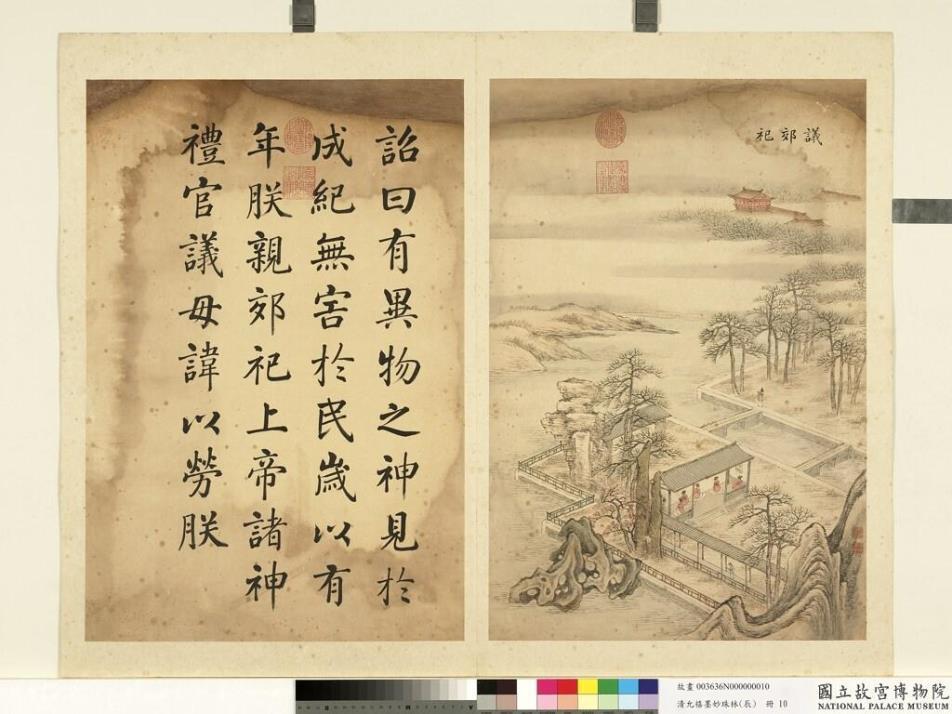 議郊祀
詔曰有異物之神見於
成紀無害於民歲以有
年朕親郊祀上帝諸神
禮官議毋諱以勞朕
故畫 003636N000000010
清允禧墨妙珠林(辰) 冊 10
國立故宮博物院
NATIONAL PALACE MUSEUM